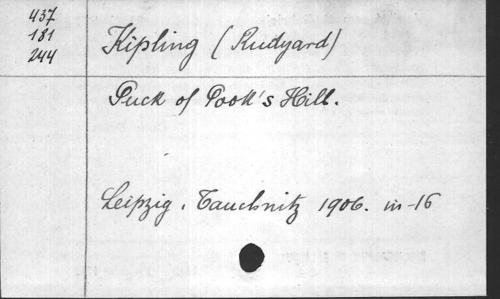 437
181
244
Kipling (Rudyard)
Puck of Pook's Hill.
Leipzig. Tauchnitz 1906. in-16